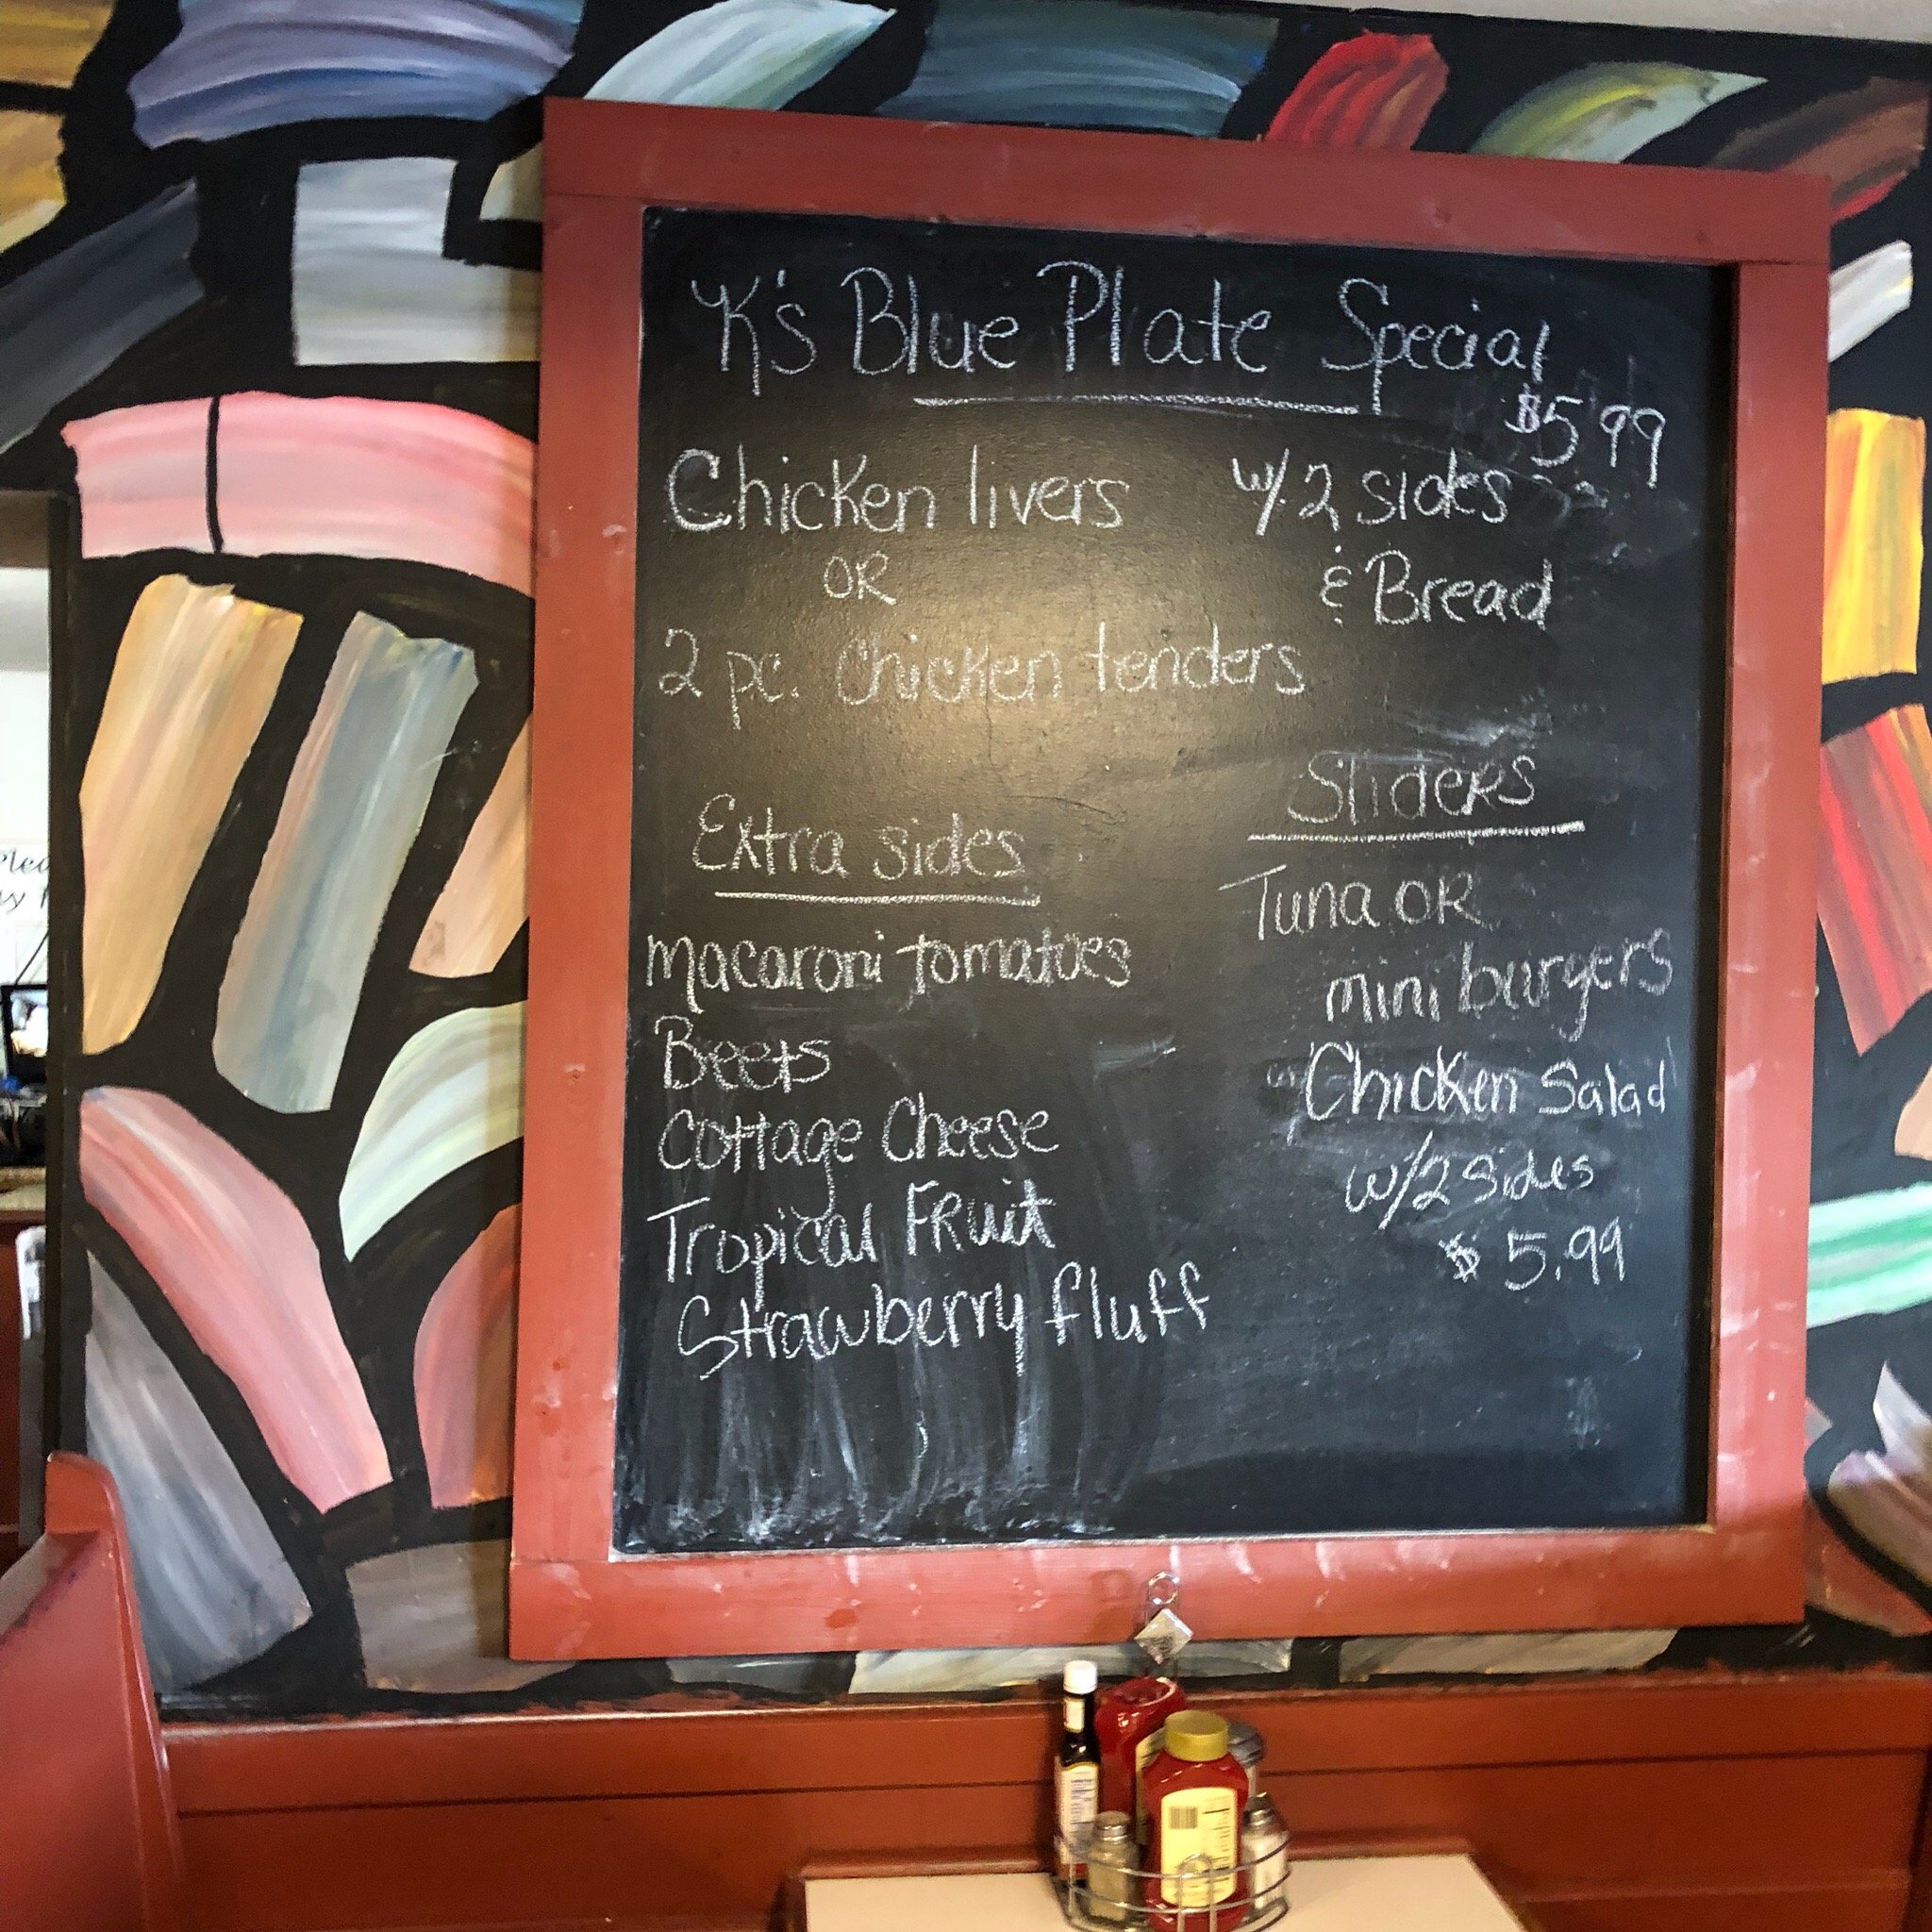 K's Blue Plate Special
$5 99
Chicken livers w/ 2 sides
OR & Bread
2 pc. Chicken tenders
Extra sides
Macaroni tomatoes
Beets
Cottage Cheese
Tropical FRuit
Strawberry fluff
SlideRs
Tuna OR
mini burgers
Chicken Salad
w/2 sides
$ 5.99